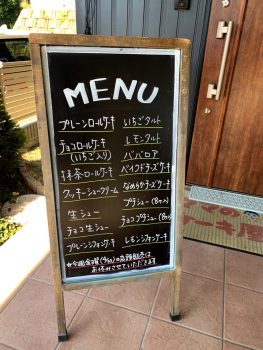 MENU
プレーンロールケーキ
チョコロールケーキ
(いちご入り)
抹茶ロールケーキ
クッキーシュークリーム
生シュー
チョコ生シュー
プレーンシフォンケーキ
いちごタルト
レモンタルト
ババロア
ベイクドチーズケーキ
なめらかチーズケーキ
プチシュー(8ヶ入)
チョコプチシュー(8ヶ入)
レモンシフォンケーキ
お休みさせていただきます